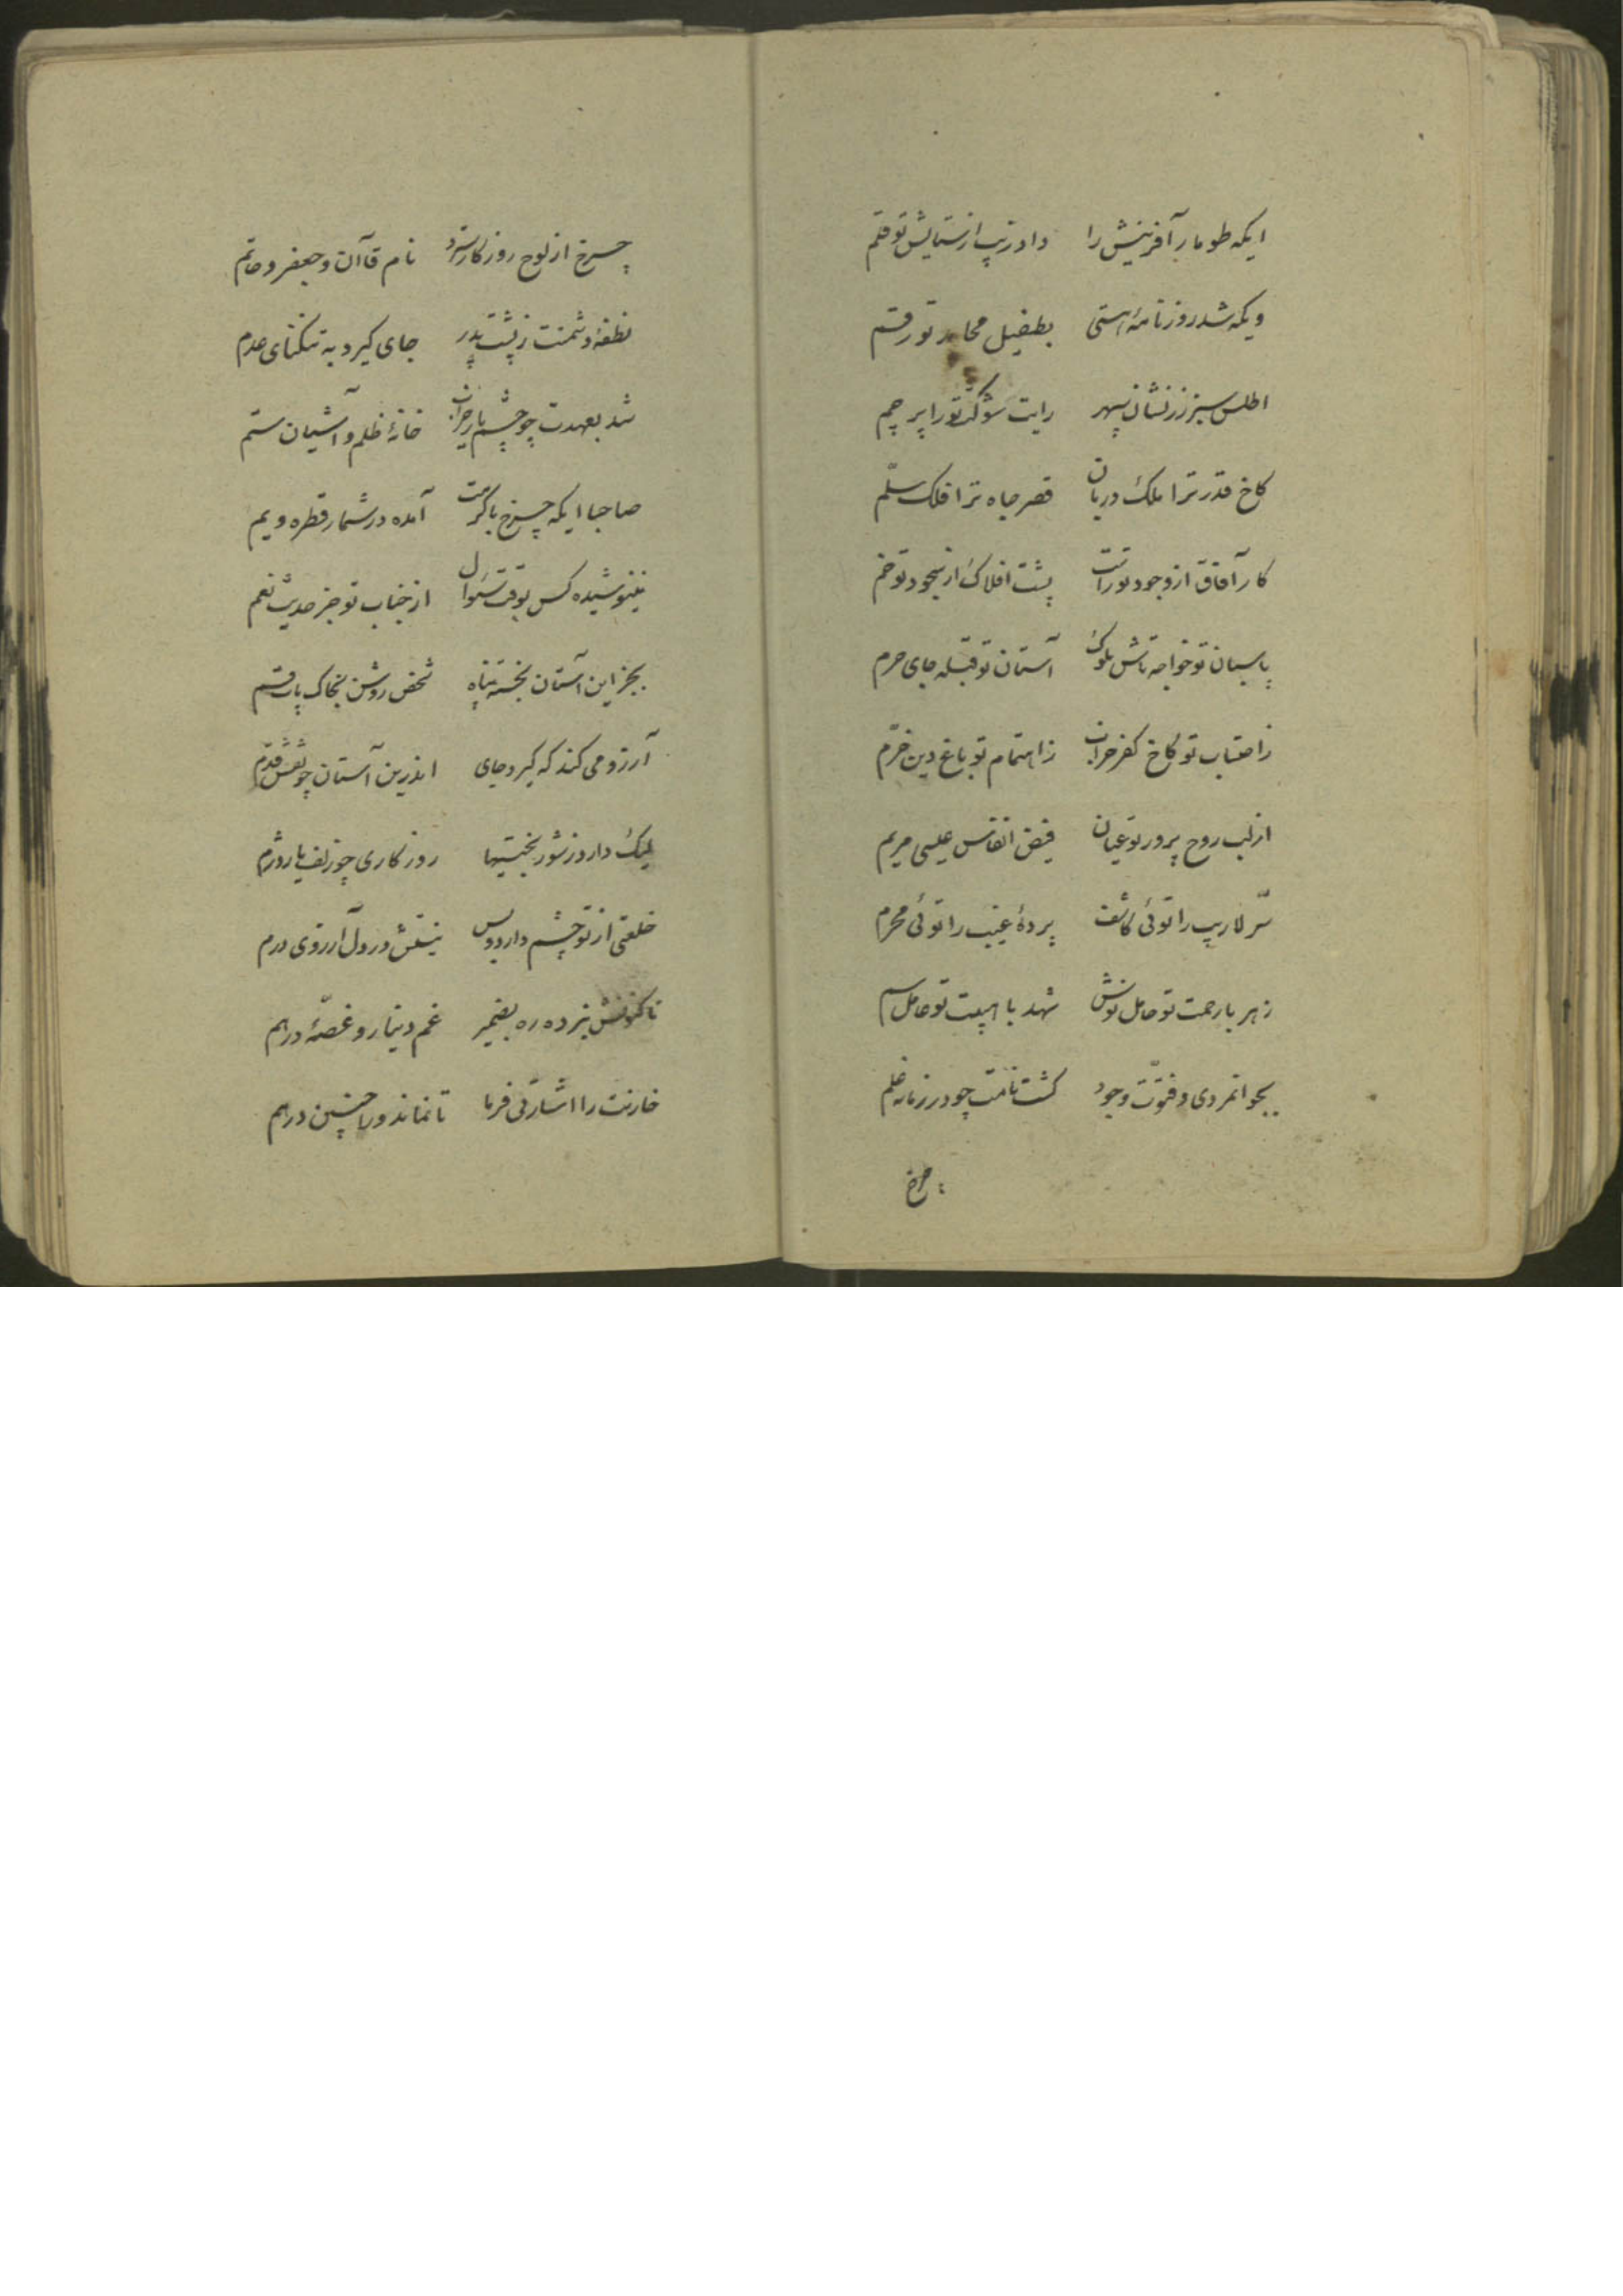 ایکه طومار آفرینش را دادزیب از ستایش تو قلم
ویکه شد روزنامهٔ هستی بطفیل محامد تو رقم
اطلس سبز زرنشان سپهر رایت شوکت تو را پرچم
کاخ قدر ترا ملک دربان قصر جاه ترا فلک سلّم
کار آفاق از وجود تو راست پشت افلاک از سجود تو خم
پاسبان تو خواجه تاش ملوک آستان تو قبله جای حرم
ز احتساب تو کاخ کفر خراب ز اهتمام تو باغ دین خرّم
از لب روح پرور تو عیان فیض انفاس عیسی مریم
سرّ لاریب را توئی کاشف پردهٔ غیب را توئی محرم
زهر با رحمت تو حامل نوش شهد با هیبت تو حامل سم
بجوانمردی و فتوّت وجود کشت نامت چو در زمانه علم
چرخ
چرخ از لوح روزکار سترد نام قاآن و جعفر و حاتم
نطفهٔ دشمنت ز پشت پدر جای کیرد به تنکنای عدم
شد بعهدت چو چشم یار خراب خانهٔ ظلم و آشیان ستم
صاحبا ایکه چرخ با کرمت آمده در شمار قطره و یم
ننیوشیده کس بوقت سئوال از جناب تو جز حدیث نعم
بجز این آستان بخسته پناه شخص روشن بخاک پات قسم
آرزو می کند که کیرد جای اندرین آستان چو نقش قدم
لیک دارد ز شور بختیها روزکاری چو زلف یار دژم
خلعتی از تو چشم دارد و بس نیستش در دل آرزوی درم
تا کنونش نبرده ره بضمیر غم دینار و غصّهٔ درهم
خازنت را اشارتی فرما تا نماند ورا چنین درهم